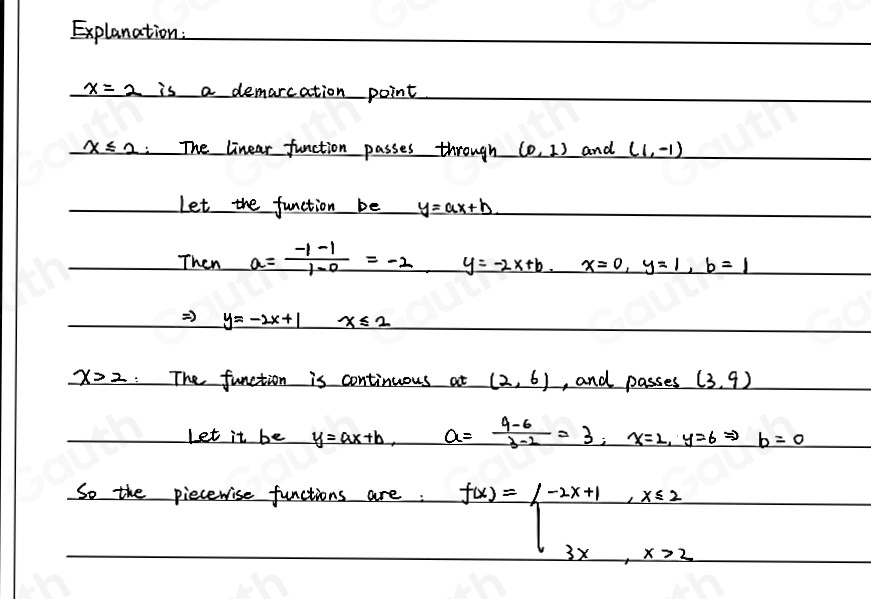 Explanation:
x = 2 is a demarcation point.
x ≤ 2: The linear function passes through (0, 1) and (1, -1)
Let the function be y = ax + b.
Then a = \frac{-1-1}{1-0} = -2. y = -2x + b. x = 0, y = 1, b = 1
⇒ y = -2x + 1 x ≤ 2
x > 2: The function is continuous at (2, 6), and passes (3, 9)
Let it be y = ax + b, a = \frac{9-6}{3-2} = 3; x = 2, y = 6 ⇒ b = 0
So the piecewise functions are: f(x) = { -2x + 1, x ≤ 2
3x, x > 2
Gauth